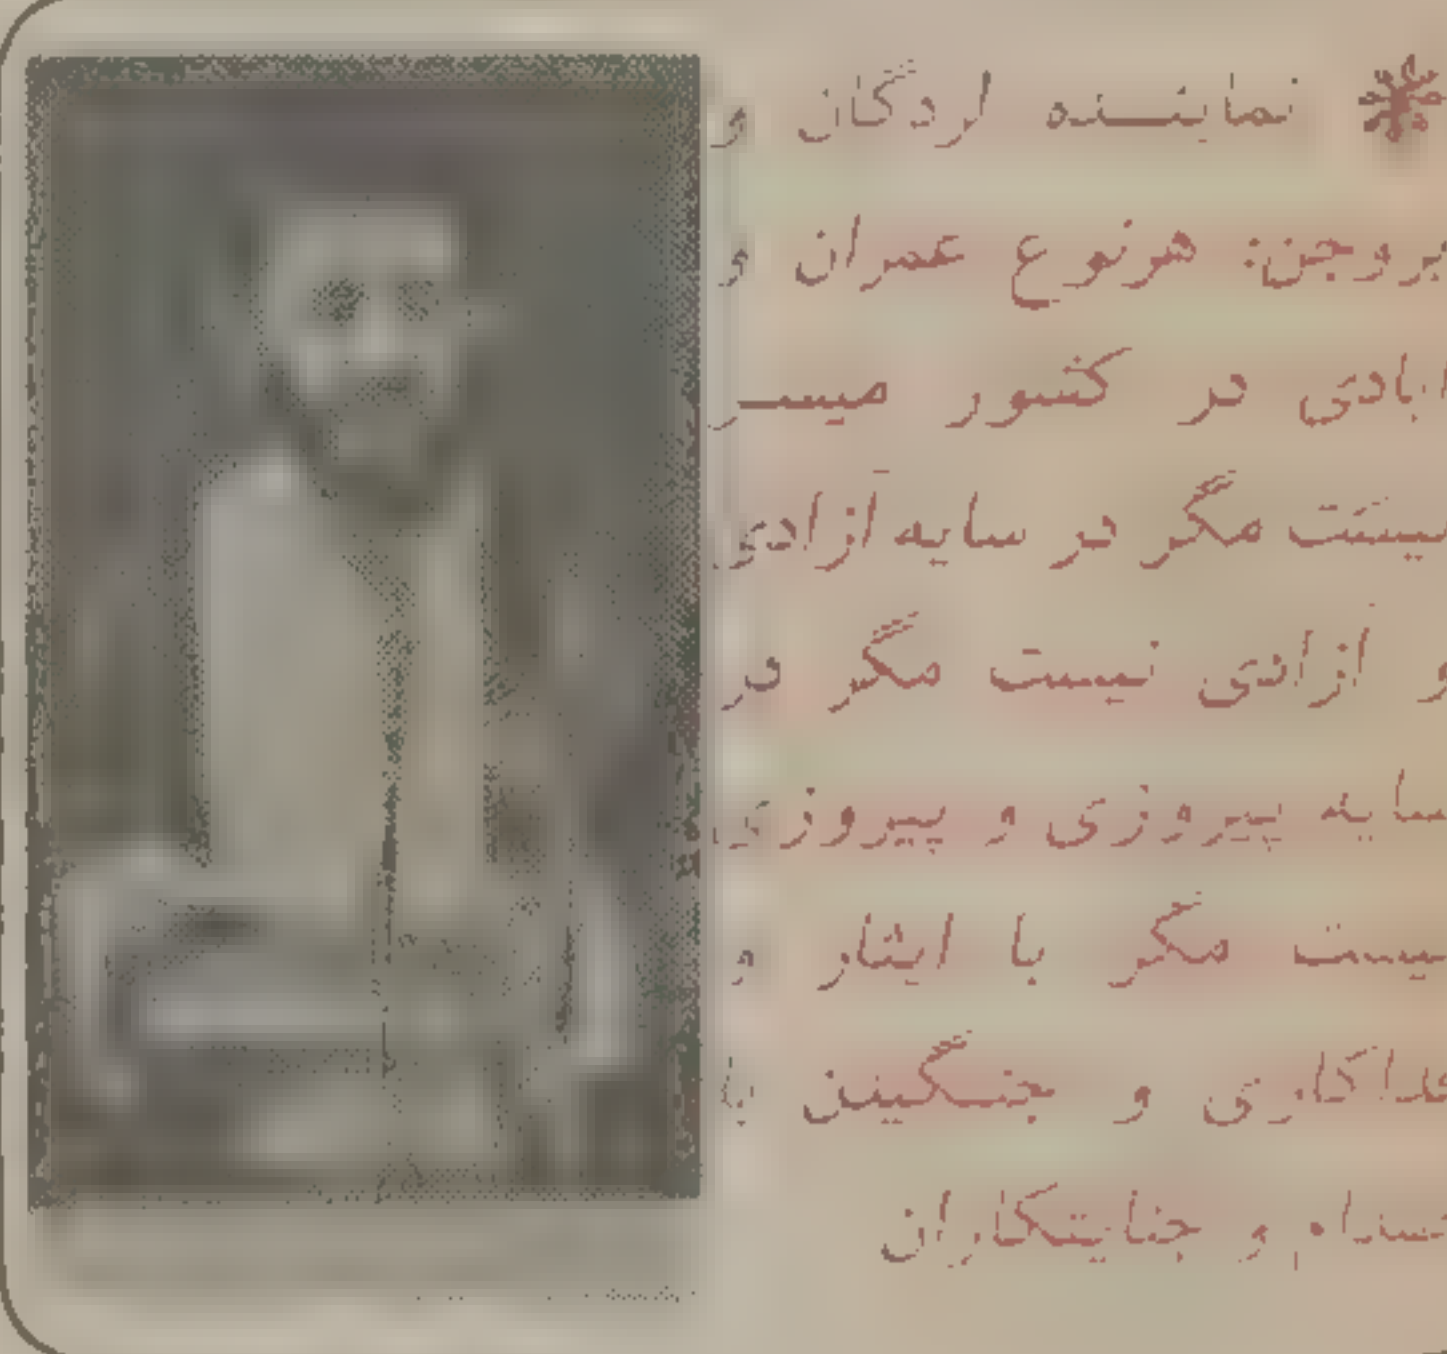 نماینده لردگان و
بروجن: هرنوع عمران و
آبادی در کشور میسر
نیست مگر در سایه آزادی
و آزادی نیست مگر در
سایه پیروزی و پیروزی
نیست مگر با ایثار و
فداکاری و جنگیدن با
صدام و جنایتکاران